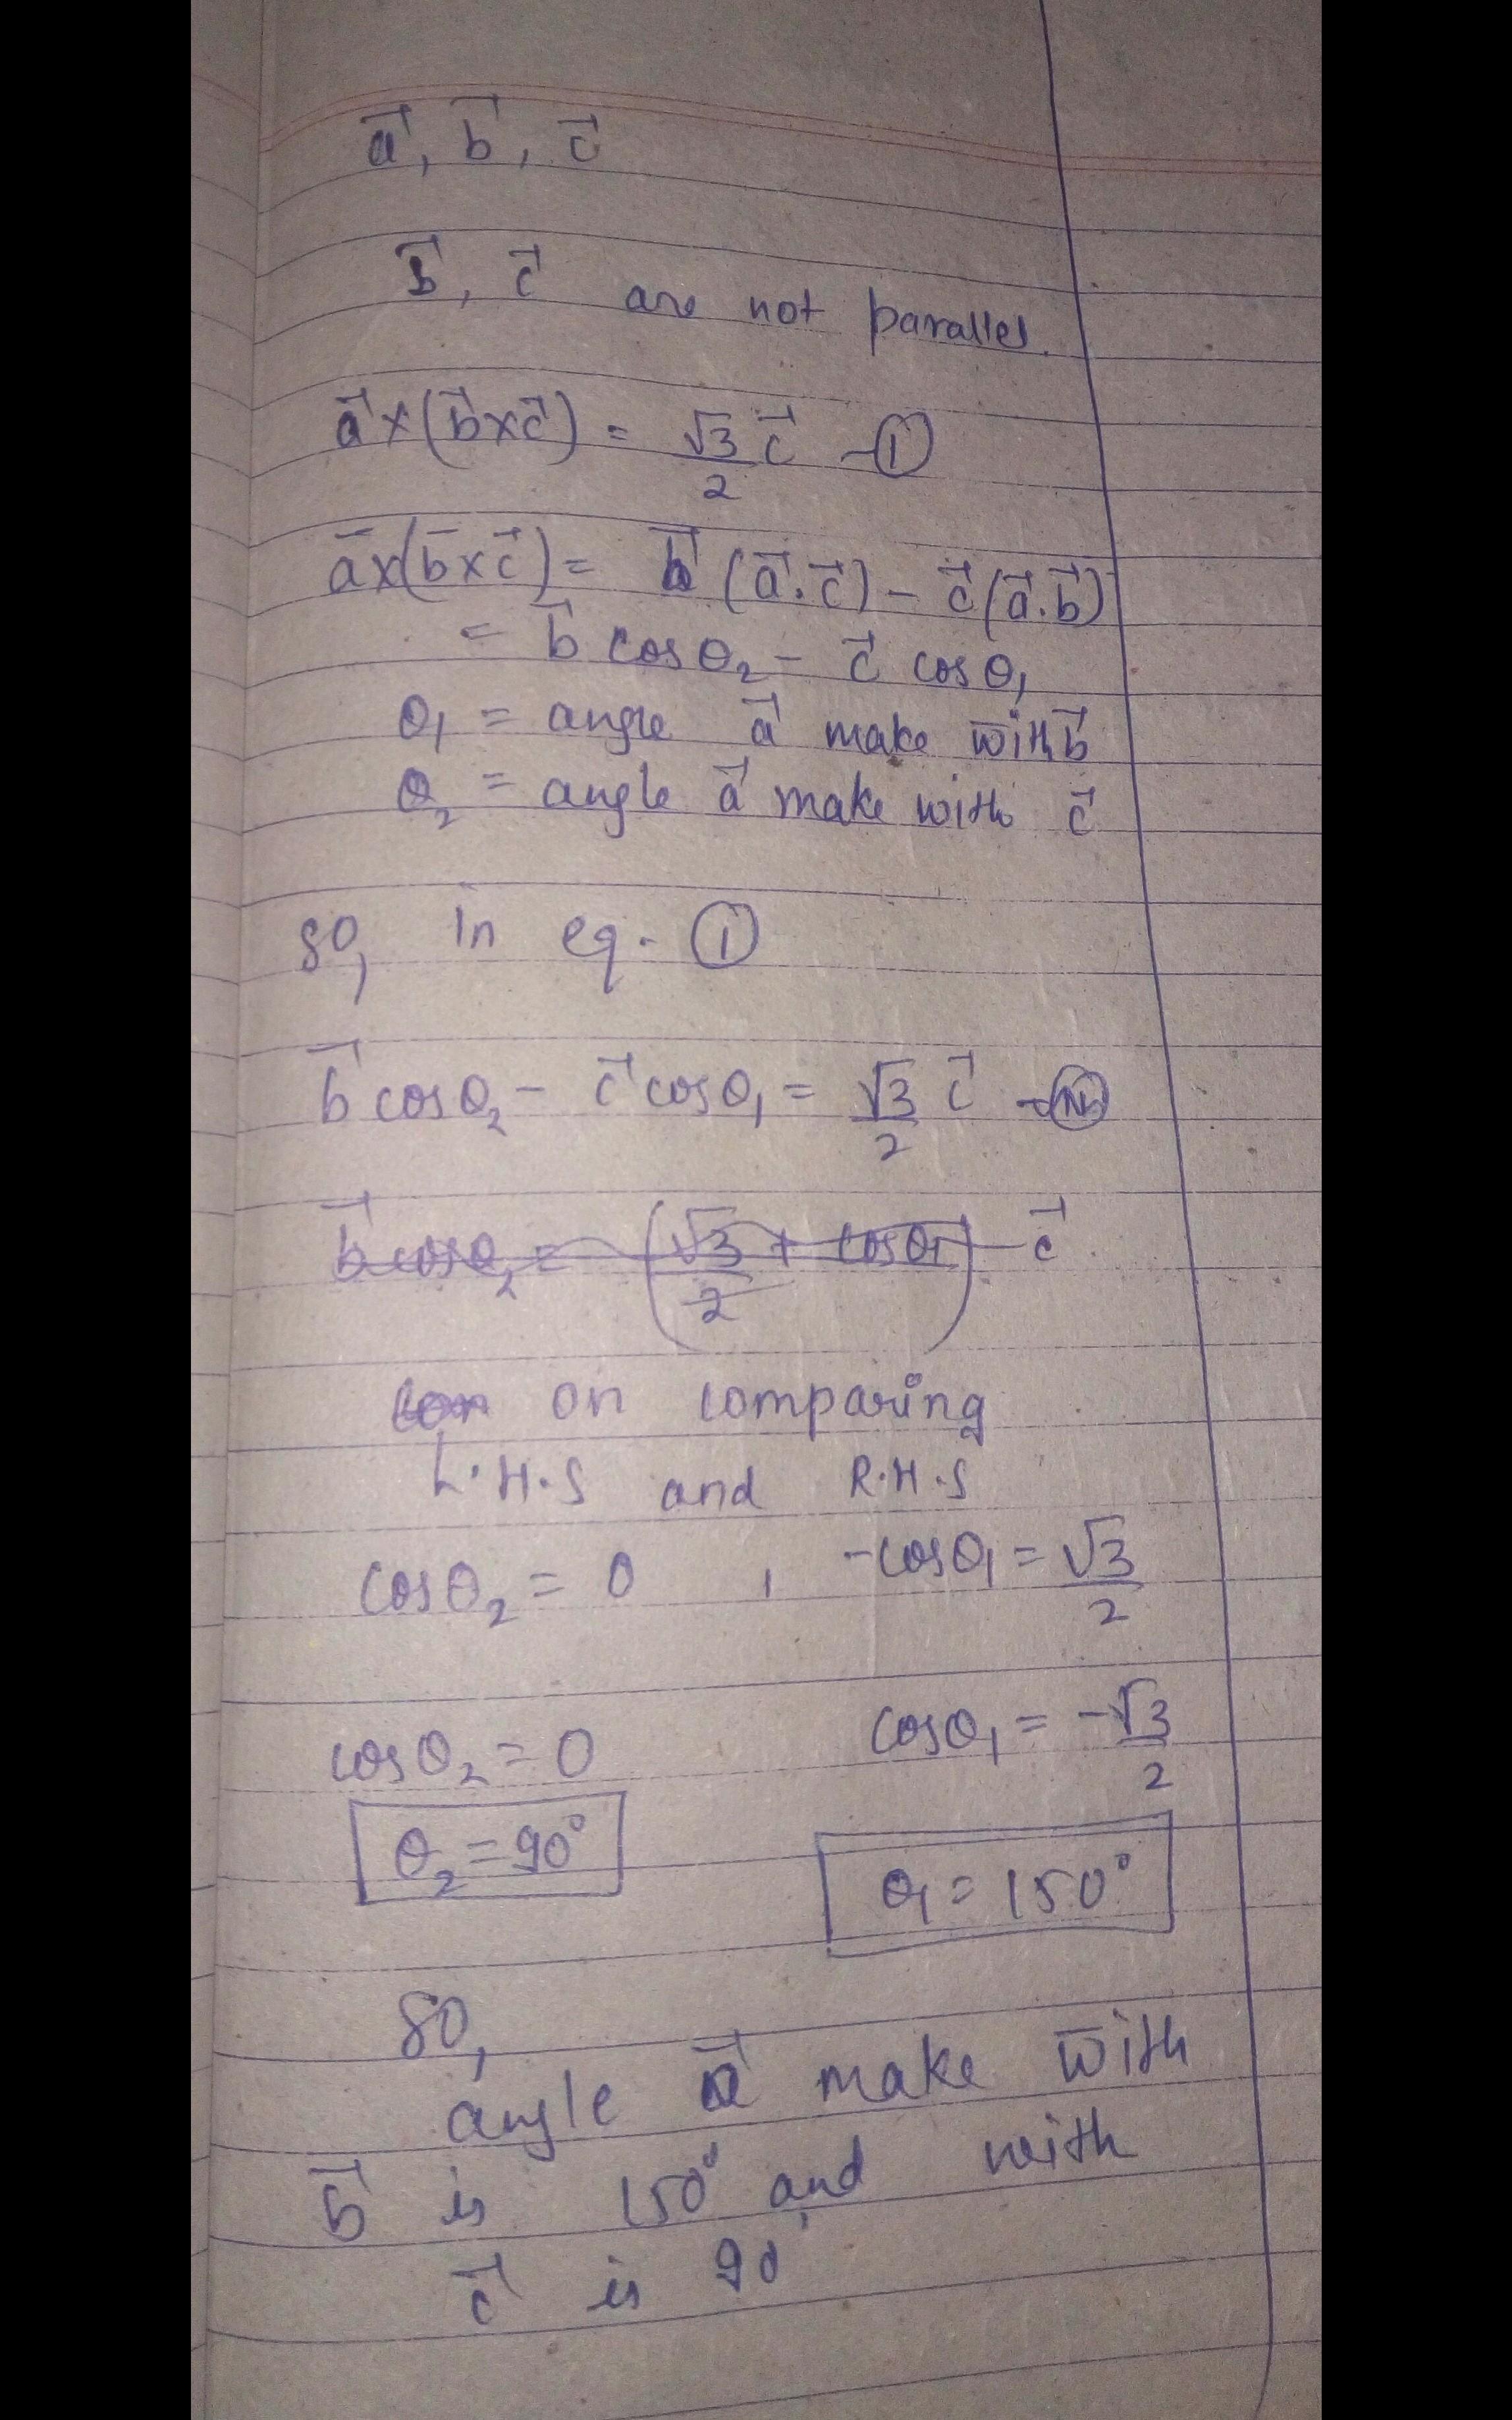 a⃗, b⃗, c⃗
b⃗, c⃗ are not parallel.
a⃗×(b⃗×c⃗) = √3/2 c⃗ -①
a⃗×(b⃗×c⃗) = b⃗ (a⃗.c⃗) - c⃗(a⃗.b⃗)
= b⃗ cosθ₂ - c⃗ cosθ₁
θ₁ = angle a⃗ make with b⃗
θ₂ = angle a⃗ make with c⃗
So, in eq. ①
b⃗ cosθ₂ - c⃗ cosθ₁ = √3/2 c⃗ -
b⃗ cosθ₂ = (√3/2 + cosθ₁) c⃗
on comparing
L.H.S and R.H.S
cosθ₂ = 0 , -cosθ₁ = √3/2
cosθ₂ = 0 cosθ₁ = -√3/2
θ₂ = 90° θ₁ = 150°
So,
angle a⃗ make with
b⃗ is 150° and with
c⃗ is 90°